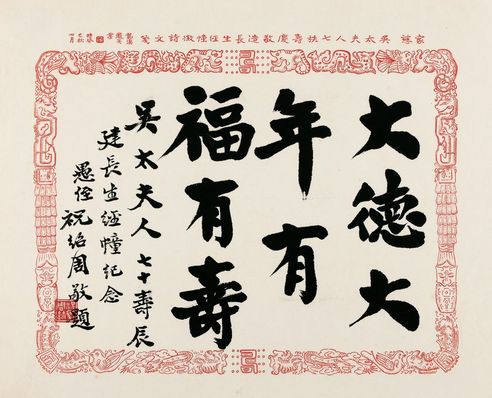 家慈 吳太夫人七秩壽慶敬造長生經幢徵詩文箋
大德大
年有
福有壽
吳太夫人七十壽辰
建長生經幢紀念
愚侄祝紹周敬題